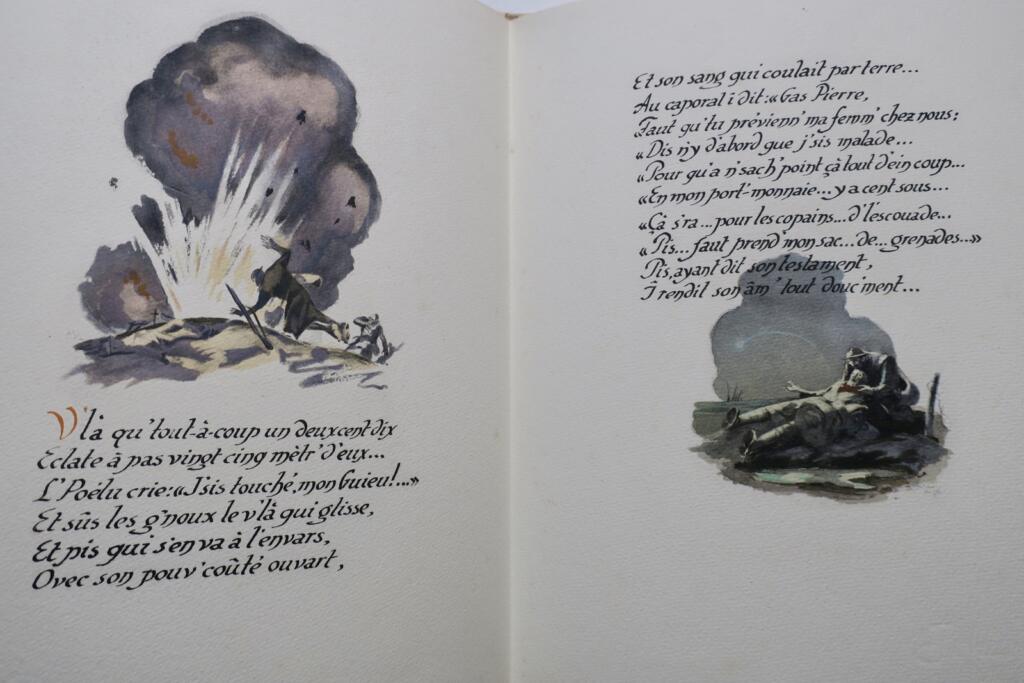 V'là qu'tout-à-coup un deux cent dix
Eclate à pas vingt cinq mètr' d'eux...
L'Poélu crie: «J'sis touché, mon Guieu!...»
Et sûs les g'noux le v'là qui glisse,
Et pis qui s'en va à l'envars,
Ovec son pouv' coûté ouvart,
Et son sang qui coulait par terre...
Au caporal i dit: «Gas Pierre,
Faut qu'tu prévienn' ma femm' chez nous:
«Dis n'y d'abord que j'sis malade...
«Pour qu'a n'sach' point çà tout d'ein coup...
«En mon port'-monnaie... y a cent sous...
«Çà s'ra... pour les copains... d'l'escouade...
«Pis... faut prend' mon sac... de... grenades...»
Pis, ayant dit son testament,
Î rendit son âm' tout douc'ment...